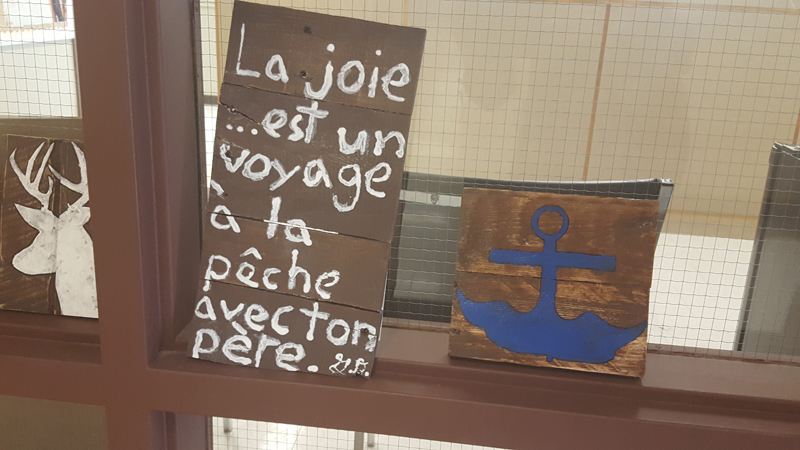 La joie
...est un
voyage
à la
pêche
avec ton
père.